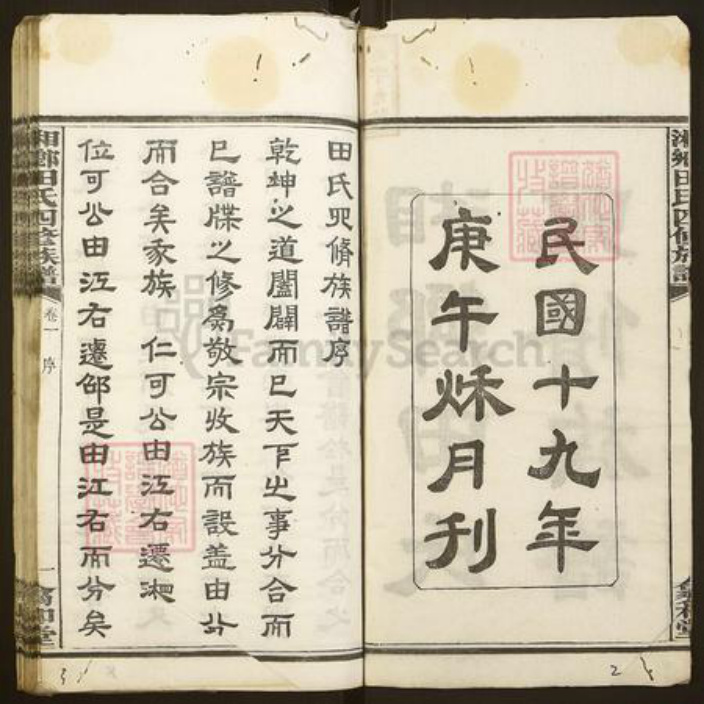 民國十九年
庚午秌月刊
湘鄉田氏四修族譜
田氏四脩族譜序
乾坤之道闔闢而已天下之事分合而
已譜牒之修爲敬宗收族而設蓋由分
而合矣家族 仁可公由江右遷湘
位可公由江右遷邵是由江右而分矣
湘鄉田氏四修族譜
卷一 序
一
FamilySearch
2